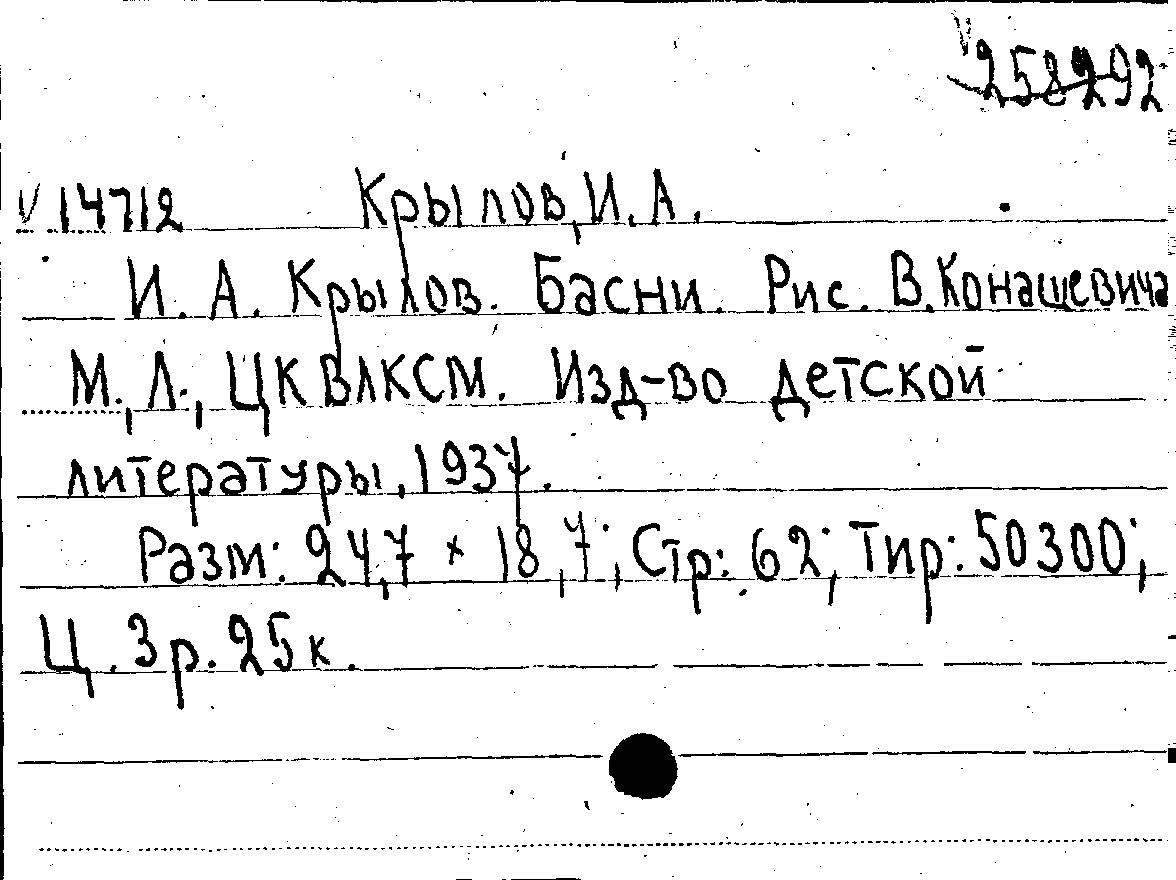 V 258292
V 14712 Крылов, И. А.
И. А. Крылов. Басни. Рис. В. Конашевича
М., Л., ЦК ВЛКСМ. Изд-во детской
литературы, 1937.
Разм: 24,7 × 18,7; Стр: 62; Тир: 50300;
Ц. 3 р. 25 к.